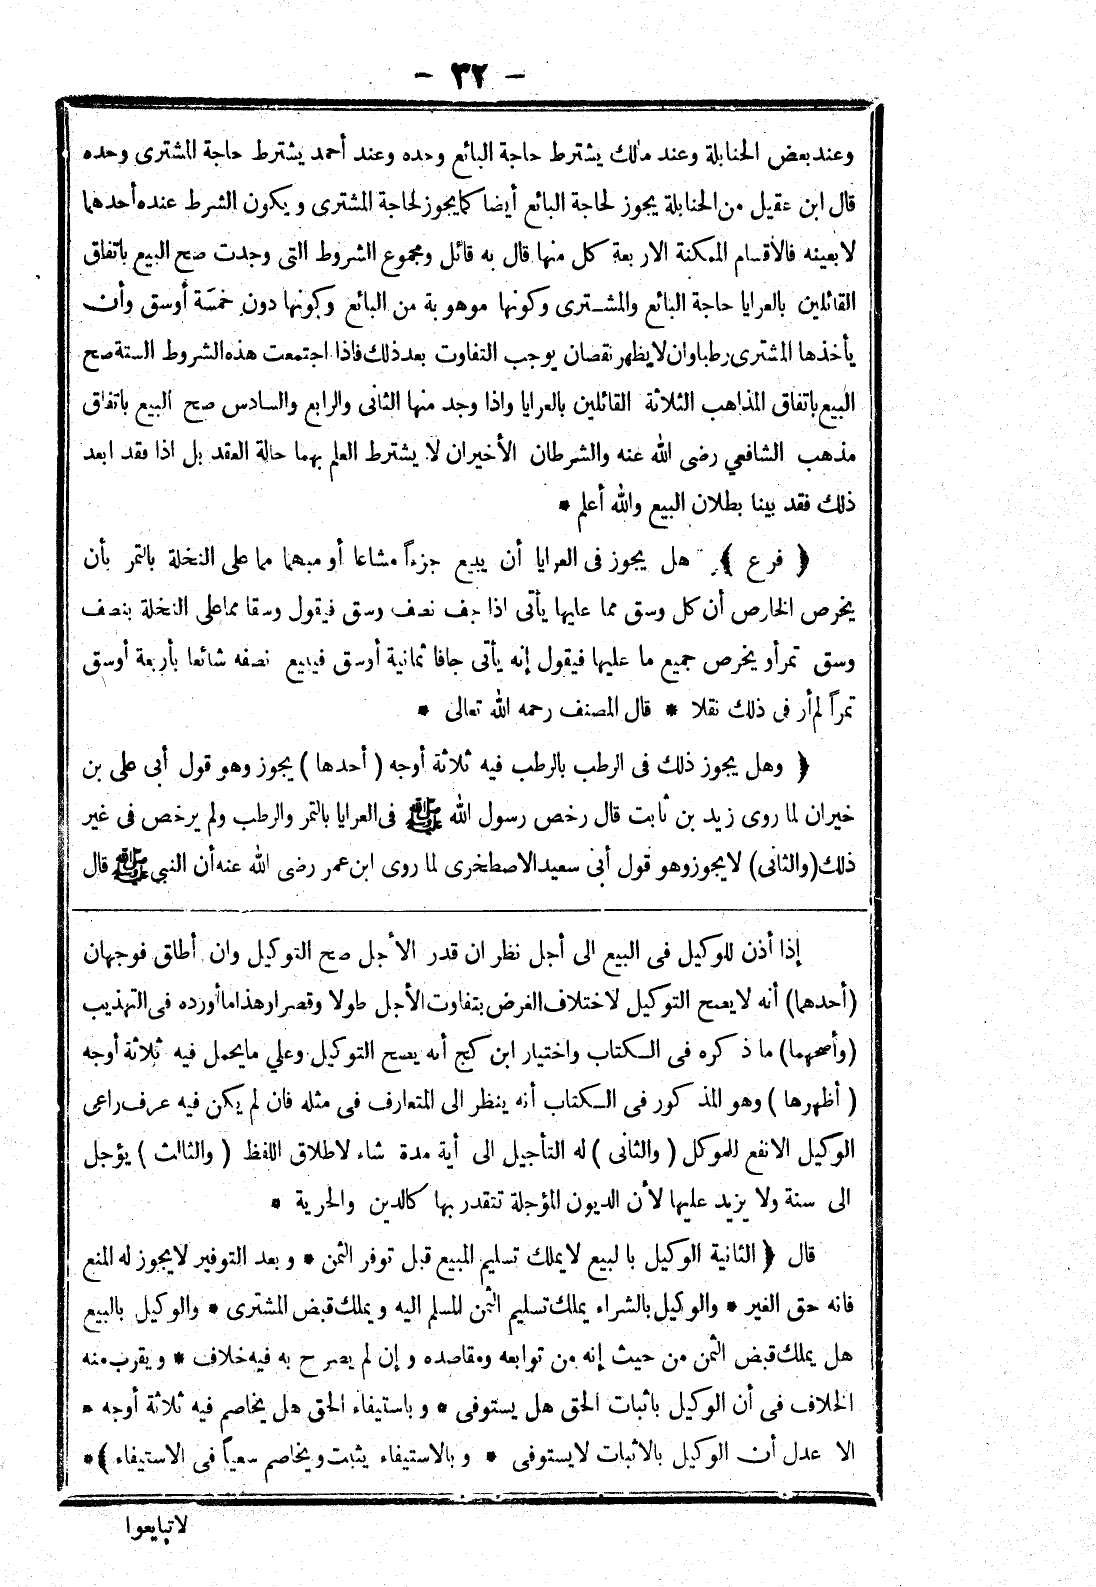 - ٣٢ -
وعند بعض الحنابلة وعند مالك يشترط حاجة البائع وحده وعند أحمد يشترط حاجة المشترى وحده
قال ابن عقيل من الحنابلة يجوز لحاجة البائع أيضا كما يجوز لحاجة المشترى ويكون الشرط عنده أحدهما
لا بعينه فالأقسام الممكنة الاربعة كل منها قال به قائل ومجموع الشروط التى وجدت صح البيع باتفاق
القائلين بالعرايا حاجة البائع والمشترى وكونها موهوبة من البائع وكونها دون خمسة أوسق وأن
يأخذها المشترى رطبا وان لا يظهر نقصان يوجب التفاوت بعد ذلك فاذا اجتمعت هذه الشروط الستة صح
البيع باتفاق المذاهب الثلاثة القائلين بالعرايا واذا وجد منها الثانى والرابع والسادس صح البيع باتفاق
مذهب الشافعي رضى الله عنه والشرطان الأخيران لا يشترط العلم بهما حالة العقد بل اذا فقد ابعد
ذلك فقد بينا بطلان البيع والله أعلم *
﴿ فرع ﴾ هل يجوز فى العرايا أن يبيع جزءاً مشاعا أو مبهما مما على النخلة بالتمر بأن
يخرص الخارص أن كل وسق مما عليها يأتى اذا جف نصف وسق فيقول وسقا مما على النخلة بنصف
وسق تمر أو يخرص جميع ما عليها فيقول إنه يأتى جافا ثمانية أوسق فيبيع نصفه شائعا بأربعة أوسق
تمراً لم أر فى ذلك نقلا * قال المصنف رحمه الله تعالى *
﴿ وهل يجوز ذلك فى الرطب بالرطب فيه ثلاثة أوجه ( أحدها ) يجوز وهو قول أبى على بن
خيران لما روى زيد بن ثابت قال رخص رسول الله ﷺ فى العرايا بالتمر والرطب ولم يرخص فى غير
ذلك (والثانى) لا يجوز وهو قول أبى سعيد الاصطخرى لما روى ابن عمر رضى الله عنه أن النبي ﷺ قال
إذا أذن للوكيل فى البيع الى أجل نظر ان قدر الأجل صح التوكيل وان أطلق فوجهان
(أحدهما) أنه لا يصح التوكيل لاختلاف الغرض بتفاوت الأجل طولا وقصرا وهذا ما أورده فى التهذيب
(وأصحهما) ما ذكره فى الكتاب واختيار ابن كج أنه يصح التوكيل وعلي ما يحمل فيه ثلاثة أوجه
( أظهرها ) وهو المذكور فى الكتاب أنه ينظر الى المتعارف فى مثله فان لم يكن فيه عرف راعى
الوكيل الانفع للموكل ( والثانى ) له التأجيل الى أية مدة شاء لاطلاق اللفظ ( والثالث ) يؤجل
الى سنة ولا يزيد عليها لأن الديون المؤجلة تتقدر بها كالدين والحرية *
قال ﴿ الثانية الوكيل بالبيع لا يملك تسليم المبيع قبل توفر الثمن * وبعد التوفير لا يجوز له المنع
فانه حق الغير * والوكيل بالشراء يملك تسليم الثمن المسلم اليه ويملك قبض المشترى * والوكيل بالبيع
هل يملك قبض الثمن من حيث إنه من توابعه ومقاصده و إن لم يصرح به فيه خلاف * ويقرب منه
الخلاف فى أن الوكيل باثبات الحق هل يستوفى * و باستيفاء الحق هل يخاصم فيه ثلاثة أوجه *
الا عدل أن الوكيل بالاثبات لا يستوفى * و بالاستيفاء يثبت ويخاصم سعياً فى الاستيفاء ﴾ *
لا تبايعوا